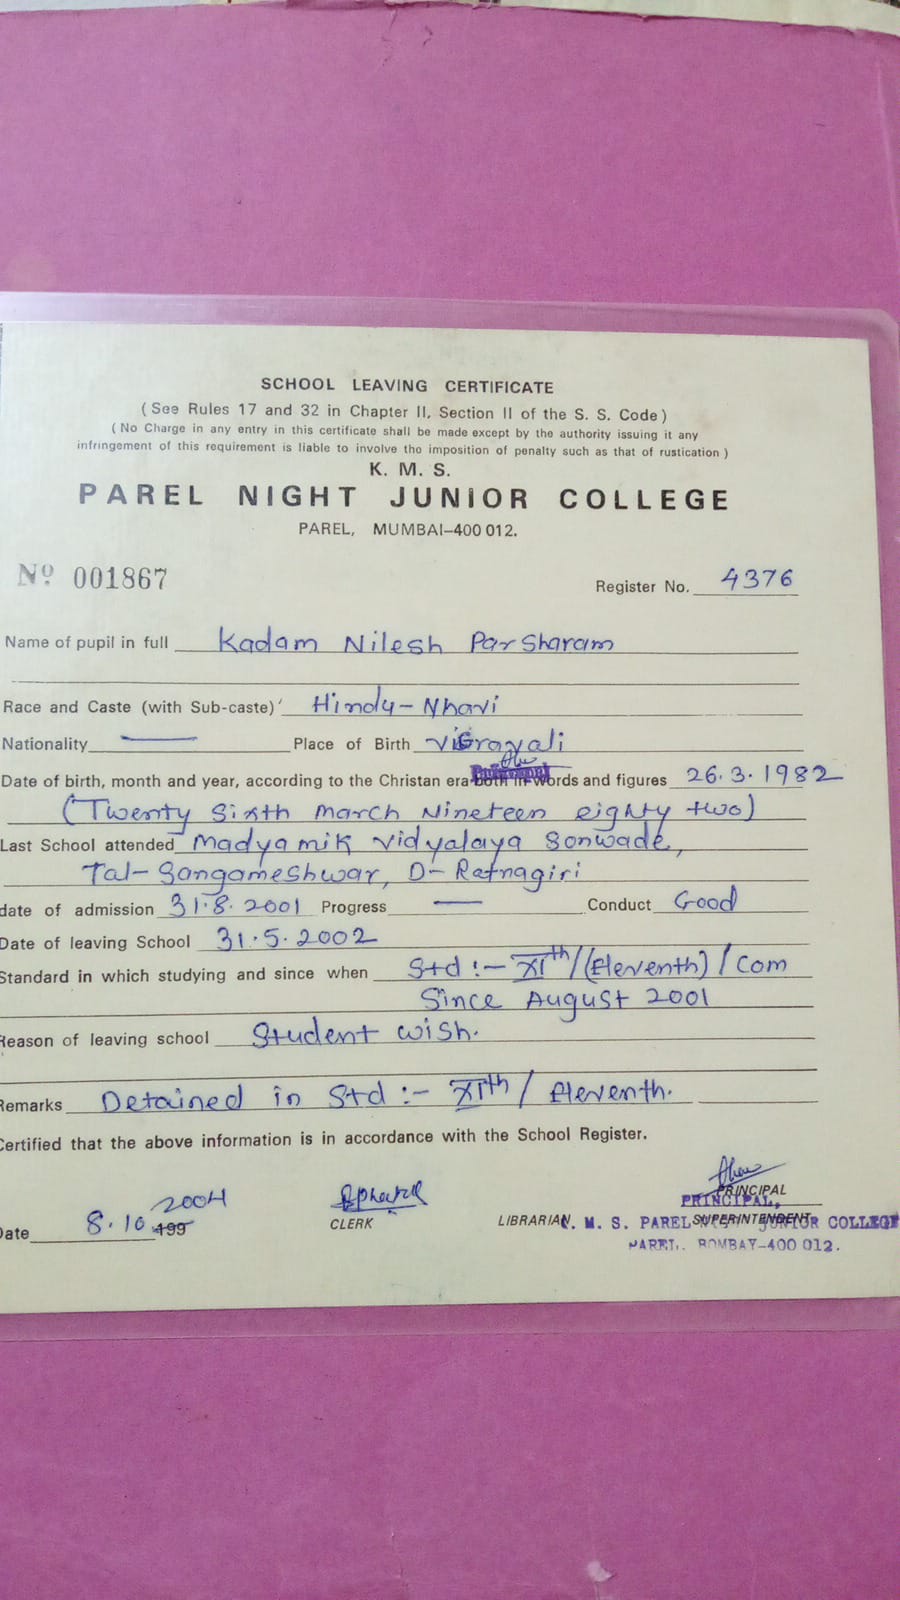 SCHOOL LEAVING CERTIFICATE
( See Rules 17 and 32 in Chapter II, Section II of the S. S. Code )
( No Charge in any entry in this certificate shall be made except by the authority issuing it any
infringement of this requirement is liable to involve the imposition of penalty such as that of rustication )
K. M. S.
PAREL NIGHT JUNIOR COLLEGE
PAREL, MUMBAI-400 012.
No 001867
Register No. 4376
Name of pupil in full Kadam Nilesh Parsharam
Race and Caste (with Sub-caste) Hindu-Nhavi
Nationality — Place of Birth
Date of birth, month and year, according to the Christan era both in words and figures 26.3.1982
(Twenty Sixth March Nineteen eighty two)
Last School attended Madyamik Vidyalaya Sonwade,
Tal- Sangameshwar, D- Ratnagiri
date of admission 31.8.2001 Progress — Conduct Good
Date of leaving School 31.5.2002
Standard in which studying and since when Std :- XIth/(Eleventh)/Com
Since August 2001
Reason of leaving school Student wish.
Remarks Detained in Std :- XIth/ Eleventh.
Certified that the above information is in accordance with the School Register.
PRINCIPAL
PRINCIPAL,
Date 8.10.2004 199
CLERK
LIBRARIAN
SUPERINTENDENT
K. M. S. PAREL JUNIOR COLLEGE
PAREL, BOMBAY-400 012.